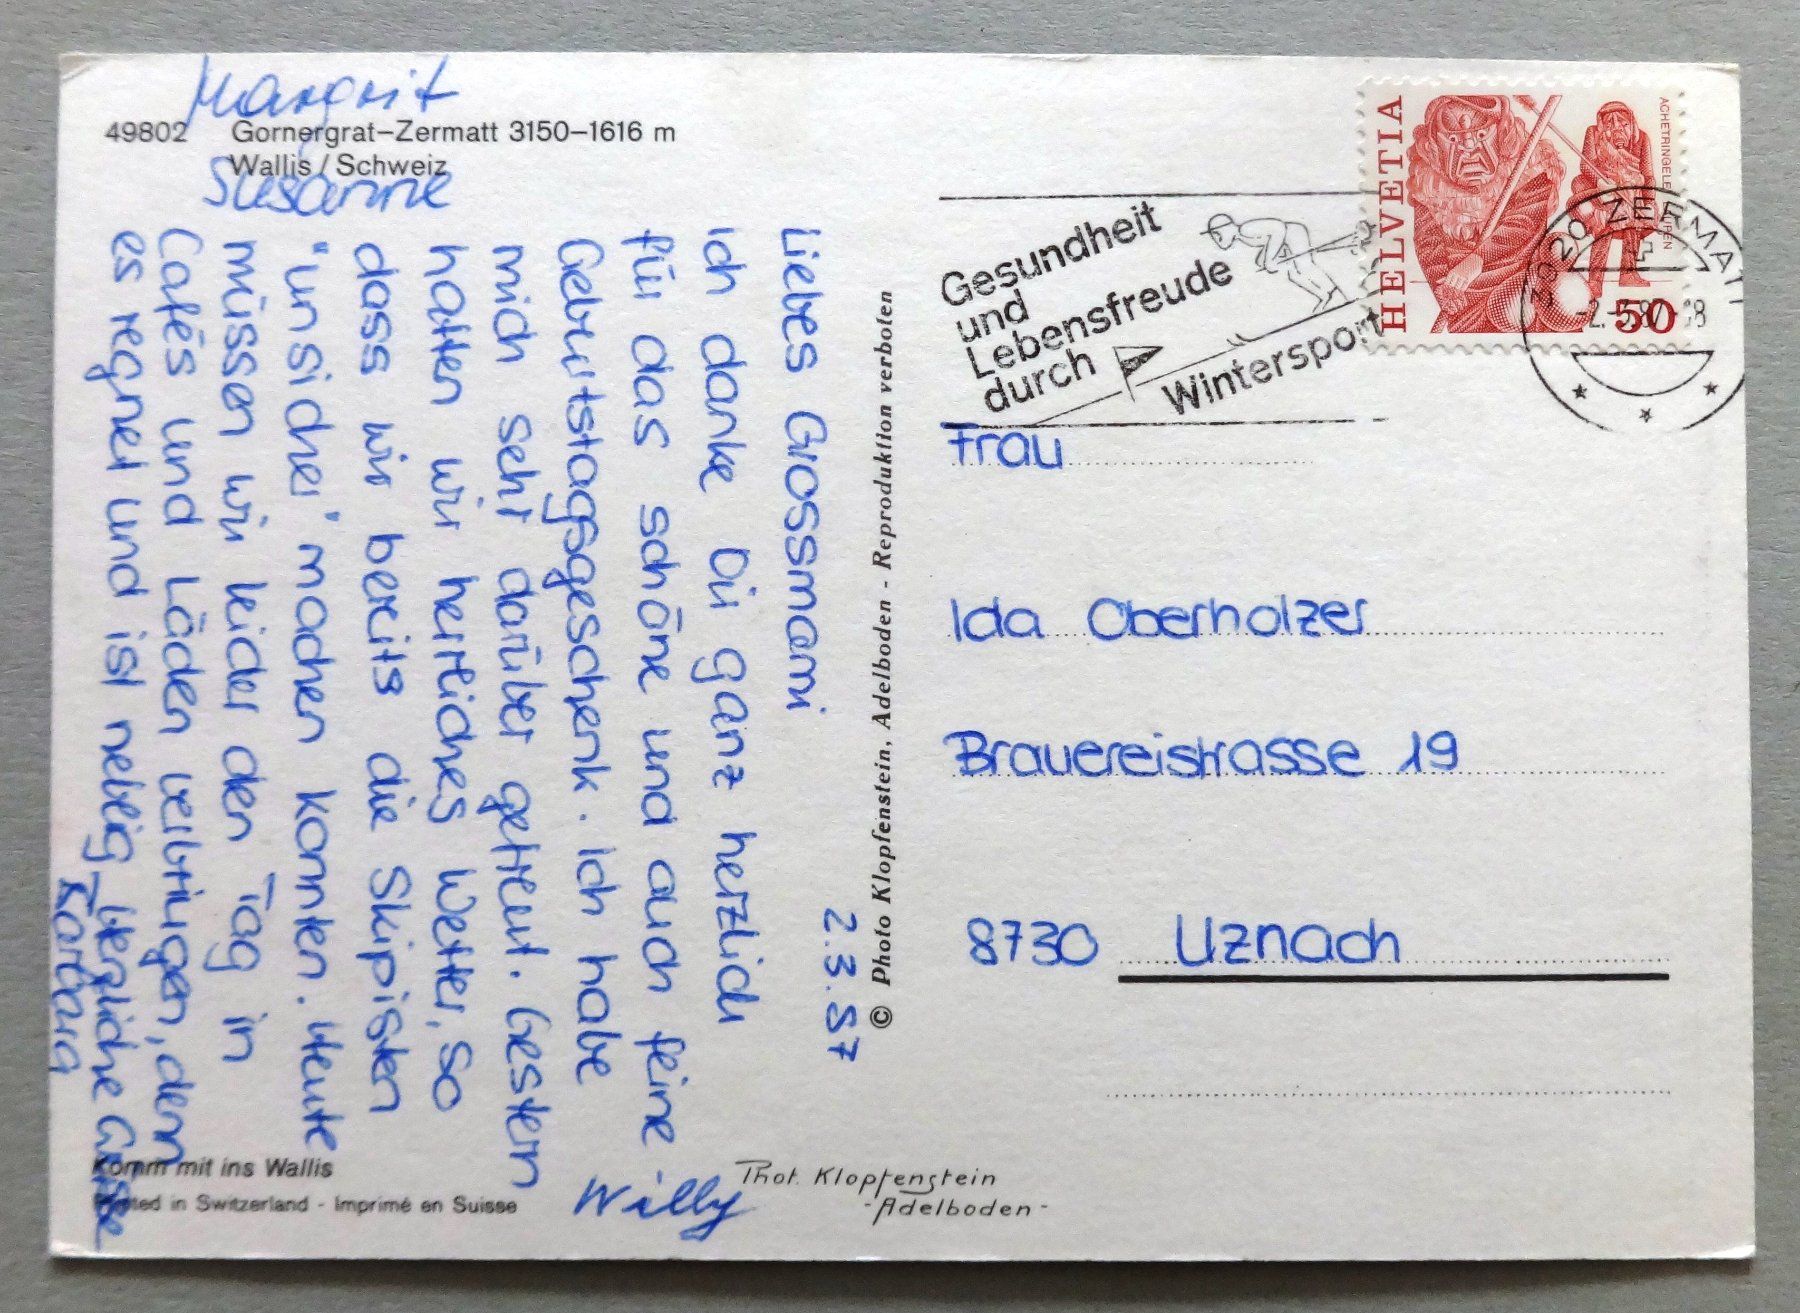 Margrit
49802 Gornergrat–Zermatt 3150–1616 m
Wallis / Schweiz
Susanne
2.3.87
Liebes Grossmami
Ich danke Dir ganz herzlich
für das schöne und auch feine
Geburtstagsgeschenk. Ich habe
mich sehr darüber gefreut. Gestern
hatten wir herrliches Wetter, so
dass wir bereits die Skipisten
"unsicher" machen konnten. Heute
müssen wir leider den Tag in
Cafés und Läden verbringen, denn
es regnet und ist neblig. Herzliche Grüsse
Barbara
Willy
Komm mit ins Wallis
Printed in Switzerland - Imprimé en Suisse
Phot. Klopfenstein
- Adelboden -
© Photo Klopfenstein, Adelboden - Reproduktion verboten
Gesundheit
und
Lebensfreude
durch
Wintersport
HELVETIA
50
3920 ZERMATT
Frau
Ida Oberholzer
Brauereistrasse 19
8730 Uznach